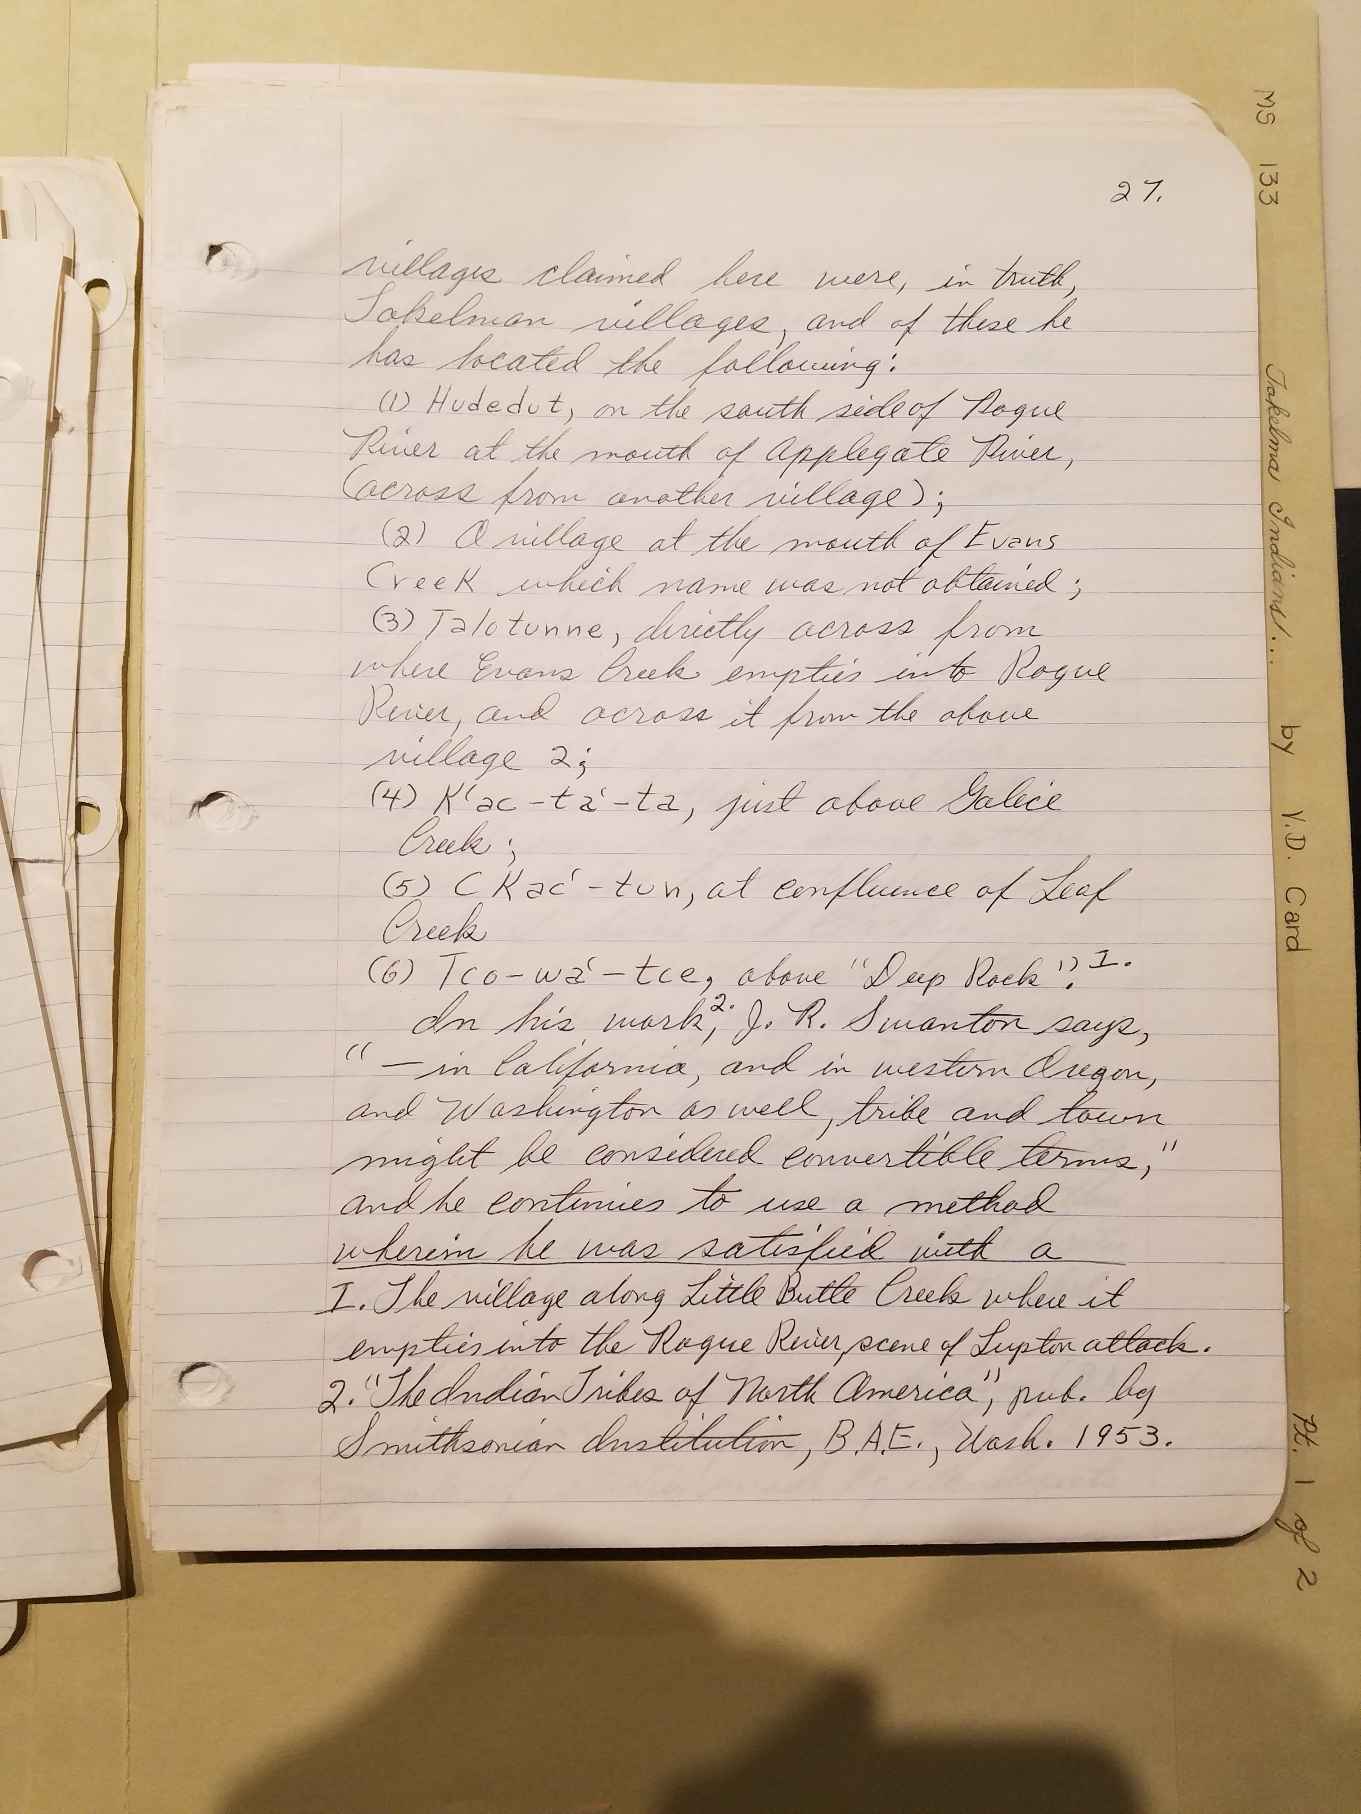 27.
villages claimed here were, in truth,
Takelman villages, and of these he
has located the following:
(1) Hudedut, on the south side of Rogue
River at the mouth of Applegate River,
(across from another village);
(2) A village at the mouth of Evans
Creek which name was not obtained;
(3) Talotunne, directly across from
where Evans Creek empties into Rogue
River, and across it from the above
village 2;
(4) K'ac-ta'-ta, just above Galice
Creek;
(5) CKac'-tun, at confluence of Leaf
Creek
(6) Tco-wa'-tce, above "Deep Rock". I.
In his work, 2. J. R. Swanton says,
"—in California, and in western Oregon,
and Washington as well, tribe and town
might be considered convertible terms,"
and he continues to use a method
wherein he was satisfied with a
I. The village along Little Butte Creek where it
empties into the Rogue River, scene of Lupton attack.
2. "The Indian Tribes of North America", pub. by
Smithsonian Institution, B.A.E., Wash. 1953.
MS 133 Takelma Indians... by V.D. Card Pt. 1 of 2